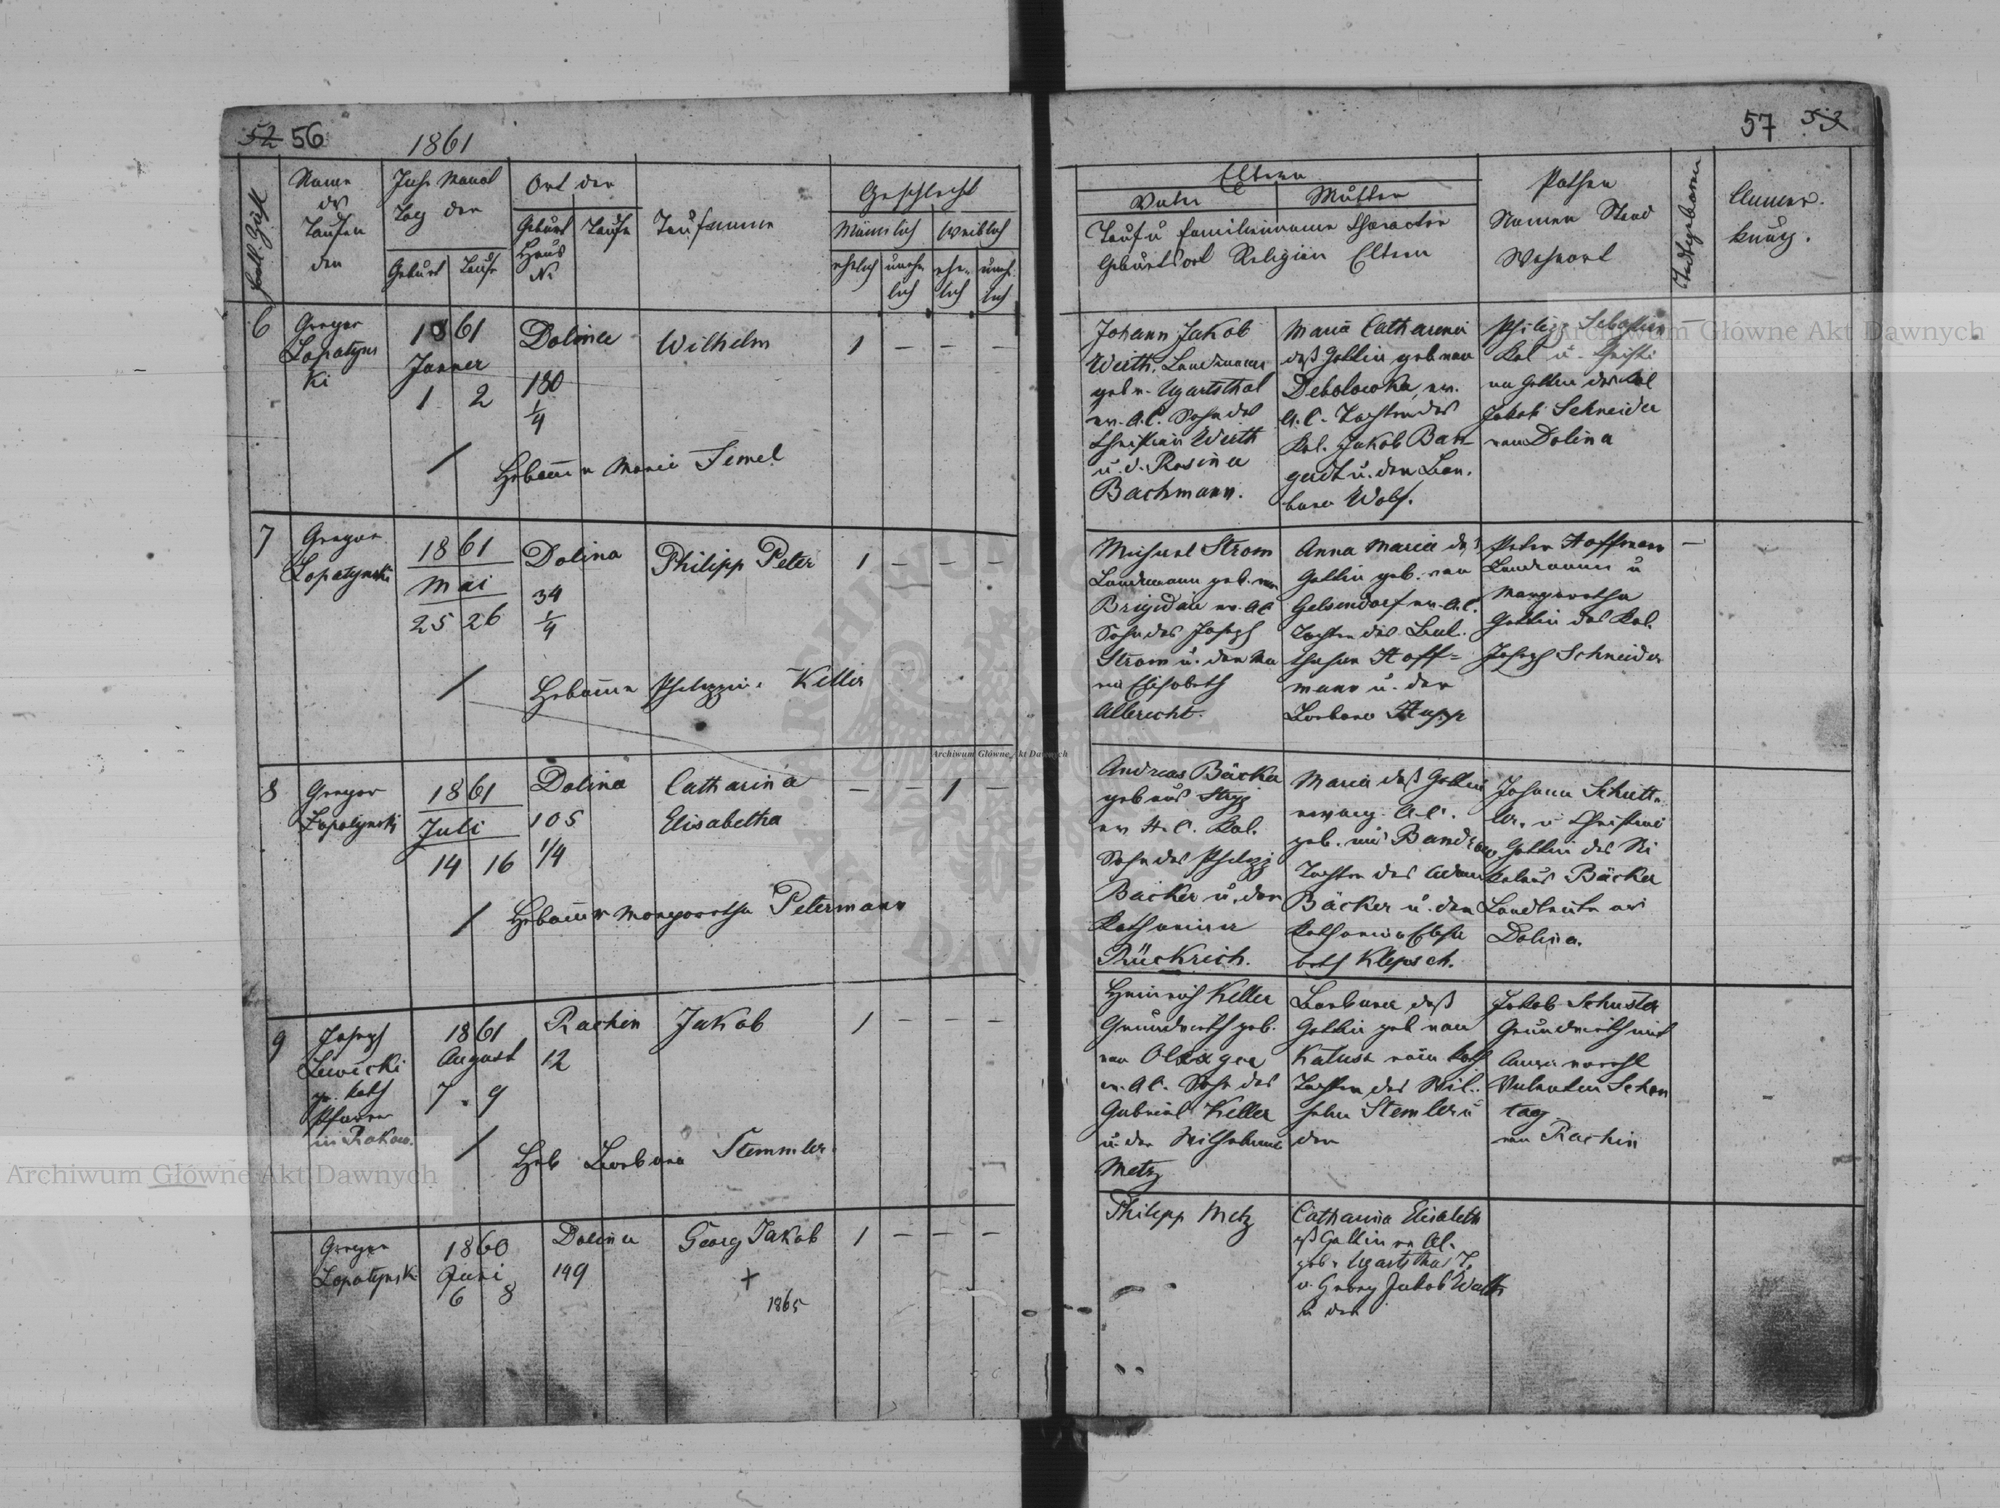 52 56
1861
Fortl. Zahl
Name
des
Taufen
den
Jahr Monat
Tag der
Geburt Taufe
Ort der
Geburt Taufe
Haus
N.
Taufname
Geschlecht
Männlich Weiblich
ehelich unehe- ehe- uneh
lich lich lich
6
Gregor
Lopatyns
ki
1861
Janner
1 2
Dolina
180
1/4
Wilhelm
1 — — —
Hebamme Maria Semel
7
Gregor
Lopatynski
1861
Mai
25 26
Dolina
34
1/4
Philipp Peter
1 — — —
Hebamme Philippi. Keller
8
Gregor
Lopatynski
1861
Juli
14 16
Dolina
105
1/4
Catharina
Elisabetha
— — 1 —
Hebamme Margaretha Petermann
9
Joseph
Lewicki
gr. kath
Pfarrer
in Rakow.
1861
August
7. 9
Rachin
12
Jakob
1 — — —
Heb Barbara Stemmler.
Gregor
Lopatynski
1860
Juni
6 8
Dolina
149
Georg Jakob
+
1865
1 — — —
57 53
Eltern
Vater Mutter
Tauf u Familienname Character
Geburtsort Religion Eltern
Pathen
Namen Stand
Wohnort
Todtgeboren
Anmer-
kung.
Johann Jakob
Weith, Landmann
geb v. Ugartsthal
ev. A.C. Sohn des
Christian Weith
u. d. Rosina
Bachmann.
Maria Catharina
deß Gattin geb von
Debolowka, ev.
A. C. Tochter des
Kol. Jakob Ban-
gerdt u. der Bar-
bara Wolf.
Philipp Sebastian
Kol u. Christi
na Gattin des Kol
Jakob Schneider
von Dolina
—
Michael Strom
Landmann geb. von
Brigidau ev. AC
Sohn des Joseph
Strom u. der Ma
ria Elisabeth
Albrecht.
Anna Maria deß
Gattin geb. von
Gelsendorf ev. A.C.
Tochter des Bal.
thasar Hoff=
mann u. der
Barbara Hupp
Peter Hoffmann
Landmann u
Margaretha
Gattin des Kol.
Joseph Schneider
—
Andreas Bäcker
geb aus Stryj
ev H. C. Kol.
Sohn des Philipp
Bäcker u. der
Katharina
Rückrich.
Maria deß Gattin
evang. A.C.
geb. aus Bandrow
Tochter des Adam
Bäcker u. der
Katharina Elisa
beth Klepsch.
Johann Schutt-
ler, u Christina
Gattin des Ni
kolaus Bäcker
Landleute aus
Dolina.
Heinrich Keller
Grundwirth geb.
von
ev. AC. Sohn des
Gabriel Keller
u. der Wilhelmine
Metz
Barbara deß
Gattin geb von
Kalusz röm kath
Tochter des Wil-
helm Stemler u
der
Jakob Schuster
Grundwirth mit
Anna
Valentin Schon
tag
von Rachin
Philipp Metz
Catharina Elisabeth
deß Gattin ev AC.
geb. Ugartsthal T.
v. Georg Jakob Weith
u der
Archiwum Główne Akt Dawnych
Archiwum Główne Akt Dawnych
Archiwum Główne Akt Dawnych